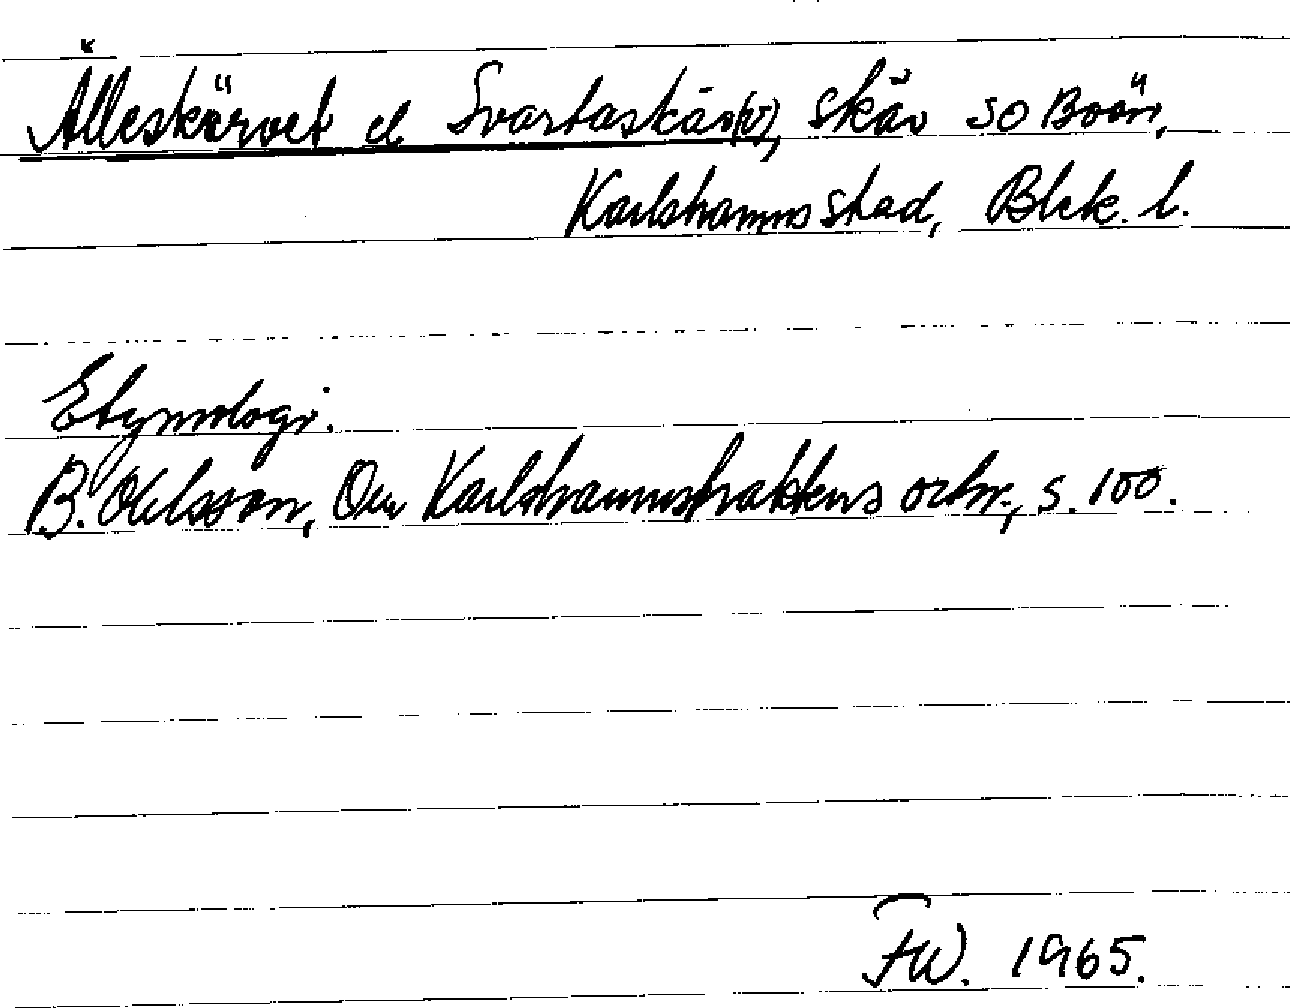 Älleskärvet el. Svartaskär(v), skär SO Boön,
Karlshamns stad, Blek. l.
Etymologi.
B. Ohlsson, Om Karlshamnstraktens ortn., s. 100.
FW. 1965.